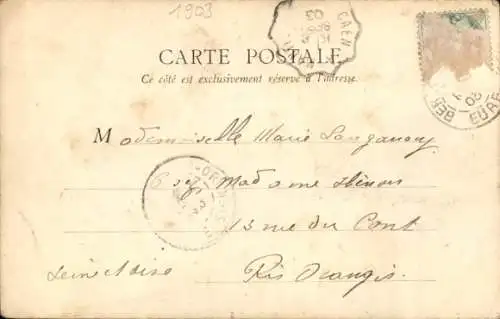 1903
CAEN
03
CARTE POSTALE
Ce côté est exclusivement réservé à l'adresse.
EURE
03
Mademoiselle Marie
chez Madame
13 rue du Pont
Ris Orangis
Seine et Oise